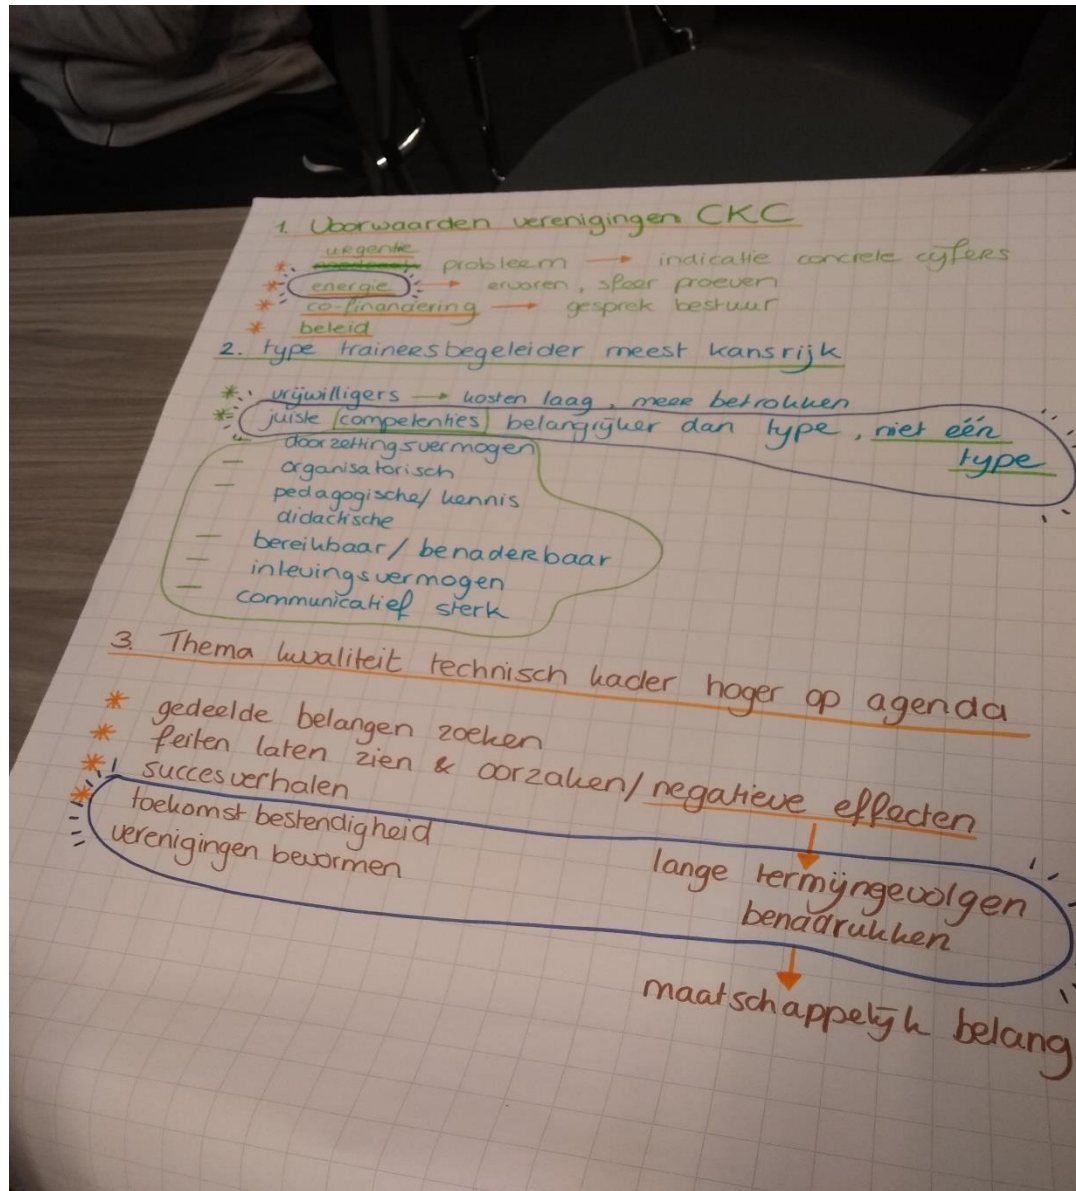 1. Voorwaarden verenigingen CKC
urgentie
* probleem → indicatie concrete cijfers
* energie → ervaren, sfeer proeven
* co-financiering → gesprek bestuur
* beleid
2. type trainersbegeleider meest kansrijk
* vrijwilligers → kosten laag, meer betrokken
* juiste competenties belangrijker dan type, niet één
type
- doorzettingsvermogen
- organisatorisch
- pedagogische/ kennis
didactische
- bereikbaar/ benaderbaar
- inlevingsvermogen
- communicatief sterk
3. Thema kwaliteit technisch kader hoger op agenda
* gedeelde belangen zoeken
* feiten laten zien & oorzaken/ negatieve effecten
* succesverhalen
* toekomst bestendigheid
verenigingen bevormen
↓ lange termijngevolgen
benadrukken
↓
maatschappelijk belang